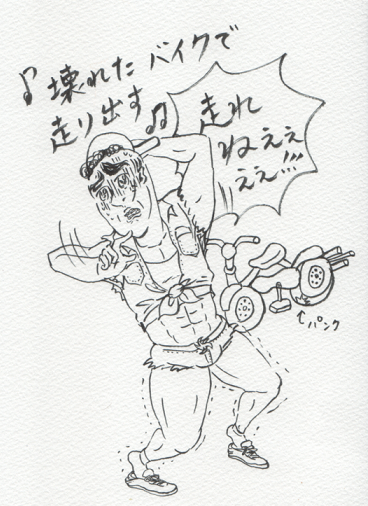 ♪壊れたバイクで
走り出す♫
走れ
ねぇぇ
ぇぇ!!!
↑パンク